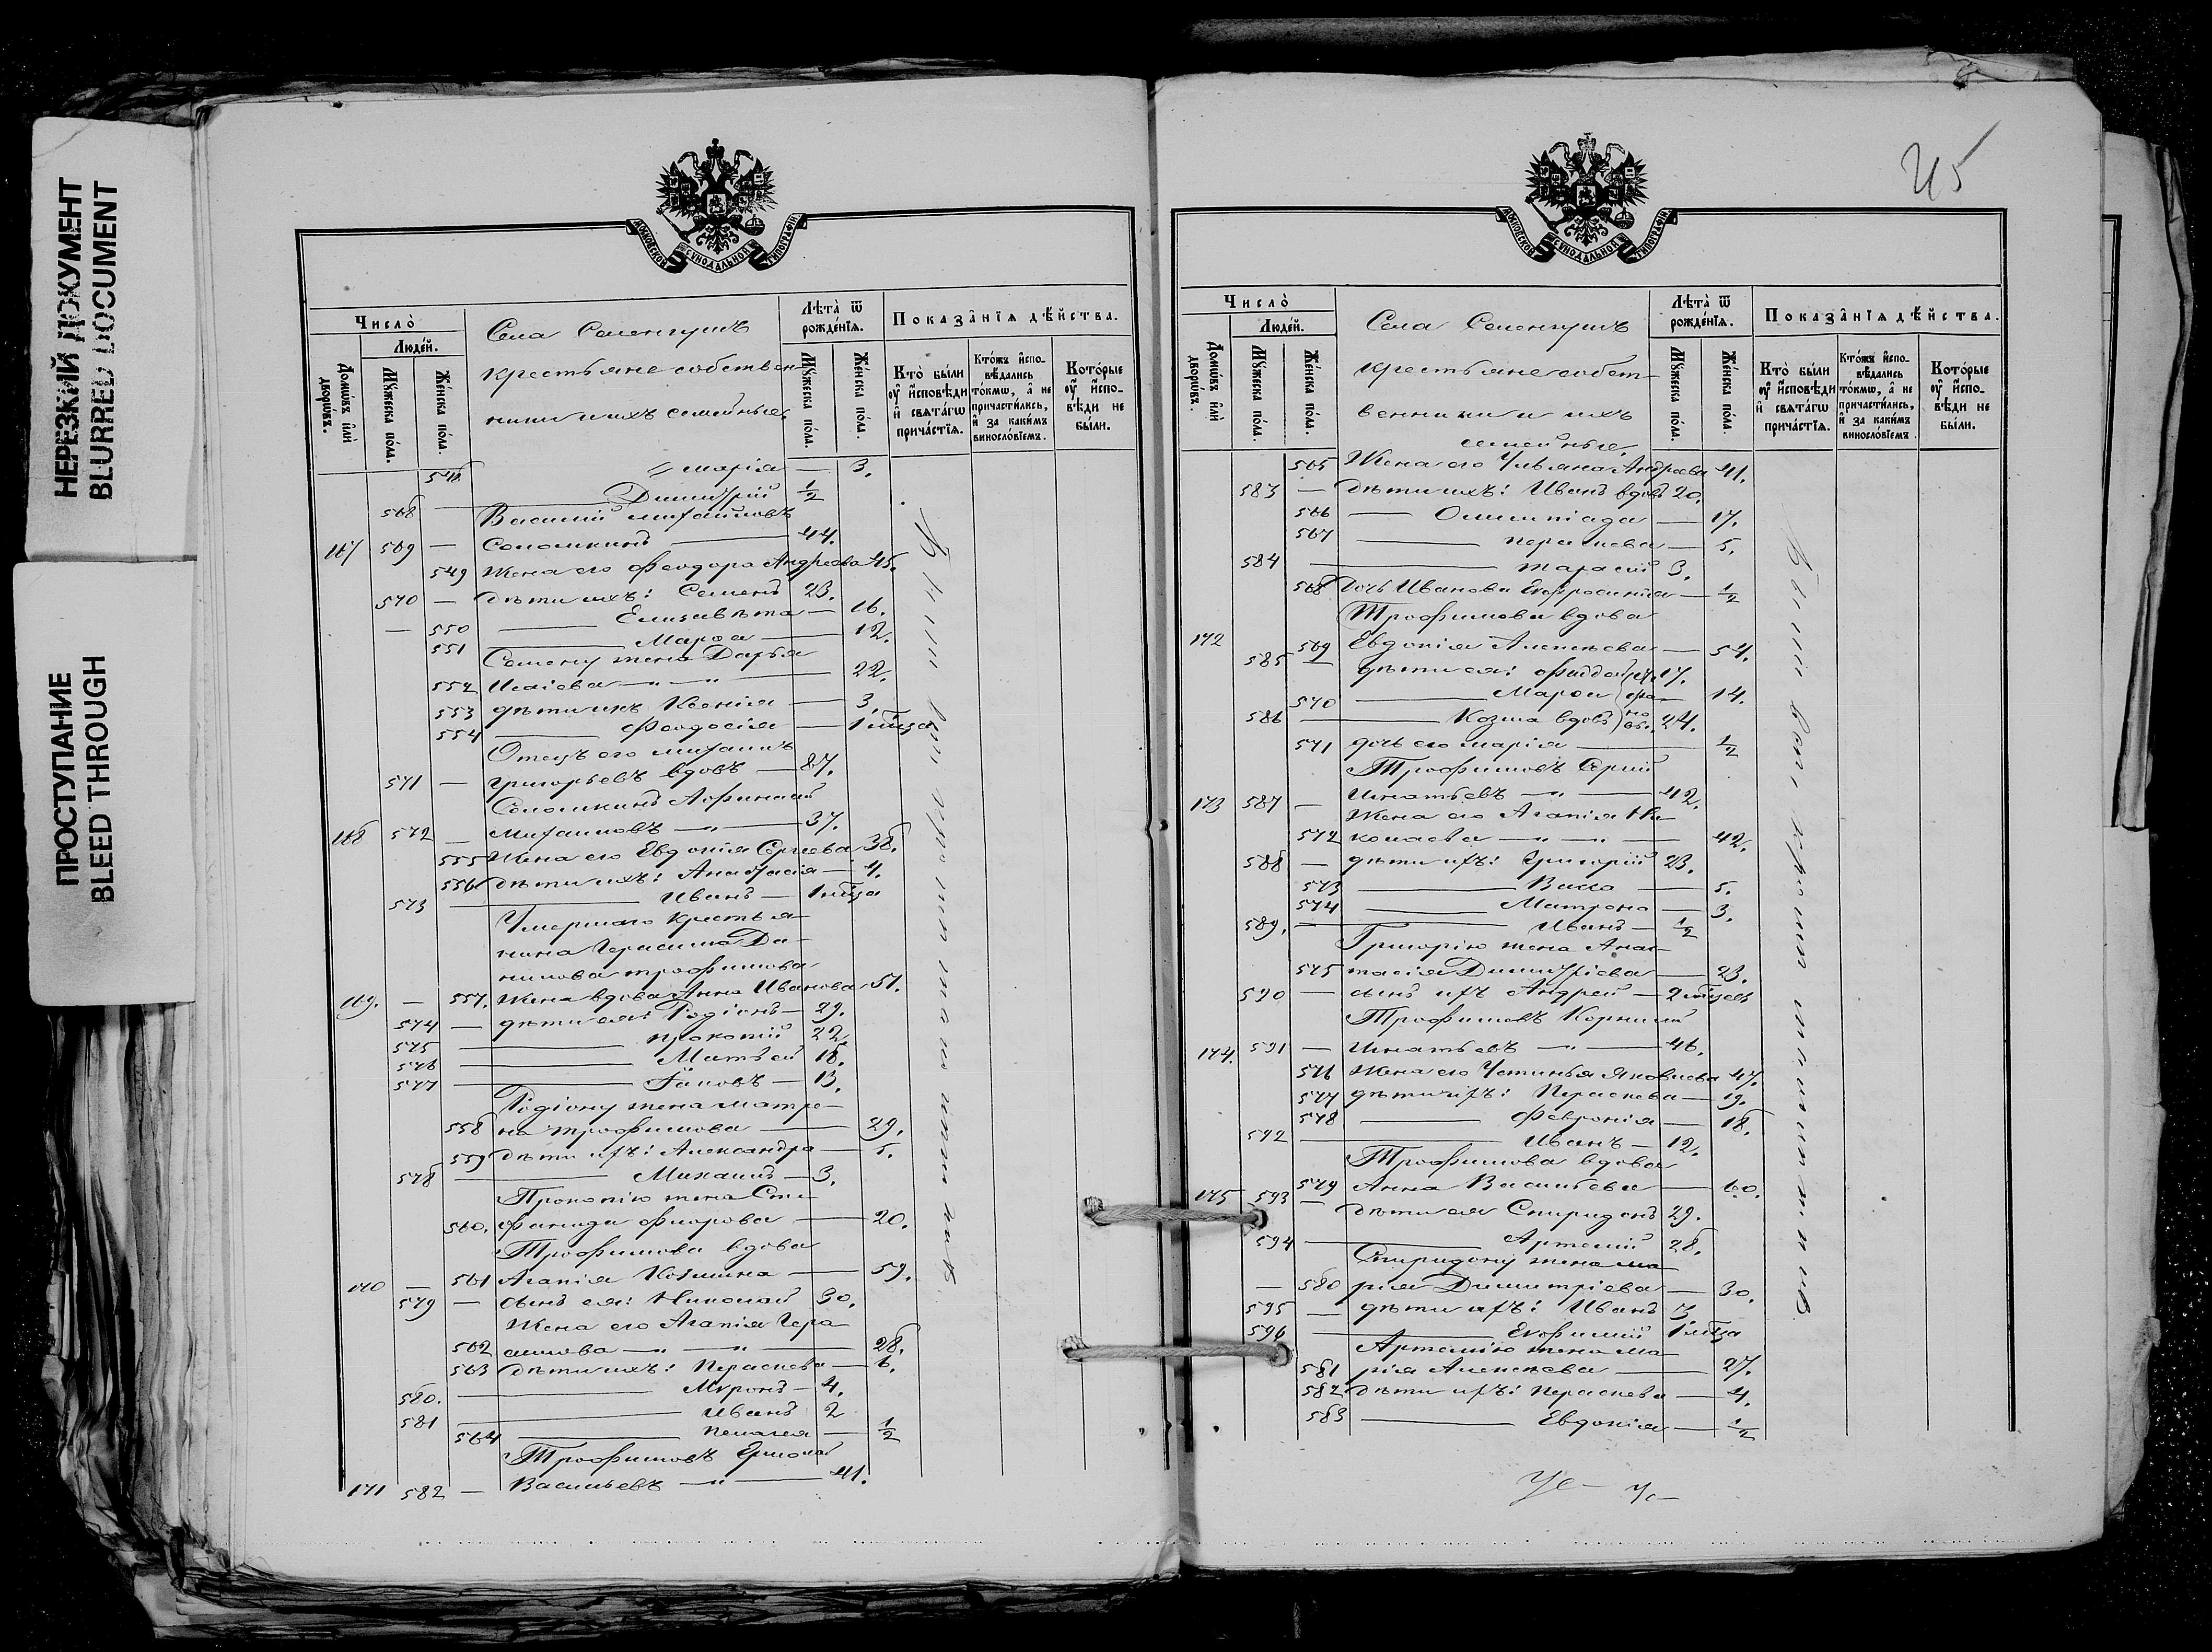 НЕРЕЗКИЙ ДОКУМЕНТ
BLURRED DOCUMENT
ПРОСТУПАНИЕ
BLEED THROUGH
МОСКОВСКОЙ СѴНОДАЛЬНОЙ ТИПОГРАФІИ
Число̀
Людей.
Домѡвъ и҆лѝ дворѡвъ.
Мꙋжеска пола.
Женска пола.
Села Селенгушъ
крестьяне собствен-
ники и ихъ семейные
Лѣта̀ ѿ рожденїѧ.
Мꙋжеска пола.
Женска пола.
Показанїѧ дѣйства.
Кто̀ были оу҆ и҆сповѣди и҆ свѧтагѡ причастїѧ.
Ктожъ и҆сповѣдались токмѡ, а҆ не причастились, и҆ за какимъ винословїемъ.
Которые оу҆ и҆сповѣди не были.
548 Марія — 3.
568 — Димитрій ½
Василій Михайловъ
167 569 — Соломкинъ — 44.
549 Жена его Феодора Андреева 45.
570 — Дѣти ихъ: Семенъ 23.
— 550 — Елизавѣта — 16.
551 — Марѳа — 12.
Семену жена Дарья
552 Исаіева — " — " — 22.
553 дѣти ихъ Ксенія — 3.
554 — Феодосія — 1 мѣсца
Отецъ его Михаилъ
571 — Григорьевъ вдовъ — 87.
Соломкинъ
168 572 — Михайловъ — " — 37.
555 Жена его Евдокія Сергеева 38.
556 дѣти ихъ: Анастасія — 4.
573 — Иванъ — 1 мѣсца
Умершаго крестья-
нина Герасима Да-
нилова Трофимова
169. — 557. Жена вдова Анна Иванова 51.
574 — дѣти ея: Родіонъ — 29.
575 — Прокопій 22.
576 — Матвей 18.
577 — Іаковъ — 13.
Родіону жена Матре-
558 на Трофимова — 29.
559 Дѣти ихъ: Александра — 5.
578 — Михаилъ — 3.
Прокопію жена Сте-
560. фанида Флорова — 20.
Трофимова вдова
170 — 561 Агапія Козмина — 59.
579 — сынъ ея: Николай 30.
Жена его Агапія Гера-
562 симова — " — " — 28.
563 Дѣти ихъ: Параскева — 6.
580. — Миронъ — 4.
581 — Иванъ 2
564 — Пелагея — ½
Трофимовъ Ермолай
171 582 — Васильевъ — " — 41.
45
МОСКОВСКОЙ СѴНОДАЛЬНОЙ ТИПОГРАФІИ
Число̀
Людей.
Домѡвъ и҆лѝ дворѡвъ.
Мꙋжеска пола.
Женска пола.
Села Селенгушъ
крестьяне собст-
венники и ихъ
семейные
Лѣта̀ ѿ рожденїѧ.
Мꙋжеска пола.
Женска пола.
Показанїѧ дѣйства.
Кто̀ были оу҆ и҆сповѣди и҆ свѧтагѡ причастїѧ.
Ктожъ и҆сповѣдались токмѡ, а҆ не причастились, и҆ за какимъ винословїемъ.
Которые оу҆ и҆сповѣди не были.
565 Жена его Ульяна Андреева 41.
583 — Дѣти ихъ: Иванъ вдовъ 20.
566 — Олимпіада — 17.
567 — Параскева — 5.
584 — Тарасій 3.
568 Дочь Иванова Евфросинія — ½
Трофимова вдова
172 569 Евдокія Алексѣева — 54.
585 — дѣти ея: 17.
570 — Марѳа — 14.
586 — Козма вдовъ 24.
571 дочь его Марія — ½
Трофимовъ Сергій
173 587 — Игнатьевъ — " — 42.
Жена его Агапія Ни-
572 колаева — " — " — 42.
588 — дѣти ихъ: Григорій 23.
573 — Васса — 5.
574 — Матрона — 3.
589. — Иванъ — ½
Григорію жена Анас-
575 тасія Димитріева — 23.
590 — сынъ ихъ Андрей — 2 мѣсцевъ
Трофимовъ Корнилій
174. 591 — Игнатьевъ — " — 46.
576 Жена его Устинья Яковлева 47.
577 дѣти ихъ: Параскева — 19.
578 — Февронія — 18.
592 — Иванъ — 12.
Трофимова вдова
175 579 Анна Васильева — 60.
593 — Дѣти ея Спиридонъ 29.
594 — Артемій 28.
Спиридону жена Ма-
— 580 рія Димитріева — 30.
595 — дѣти ихъ: Иванъ 3.
596 — Евфимій 1 мѣсца
Артемію жена Ма-
581 рія Алексѣева — 27.
582 Дѣти ихъ: Параскева — 4.
583 — Евдокія — ½